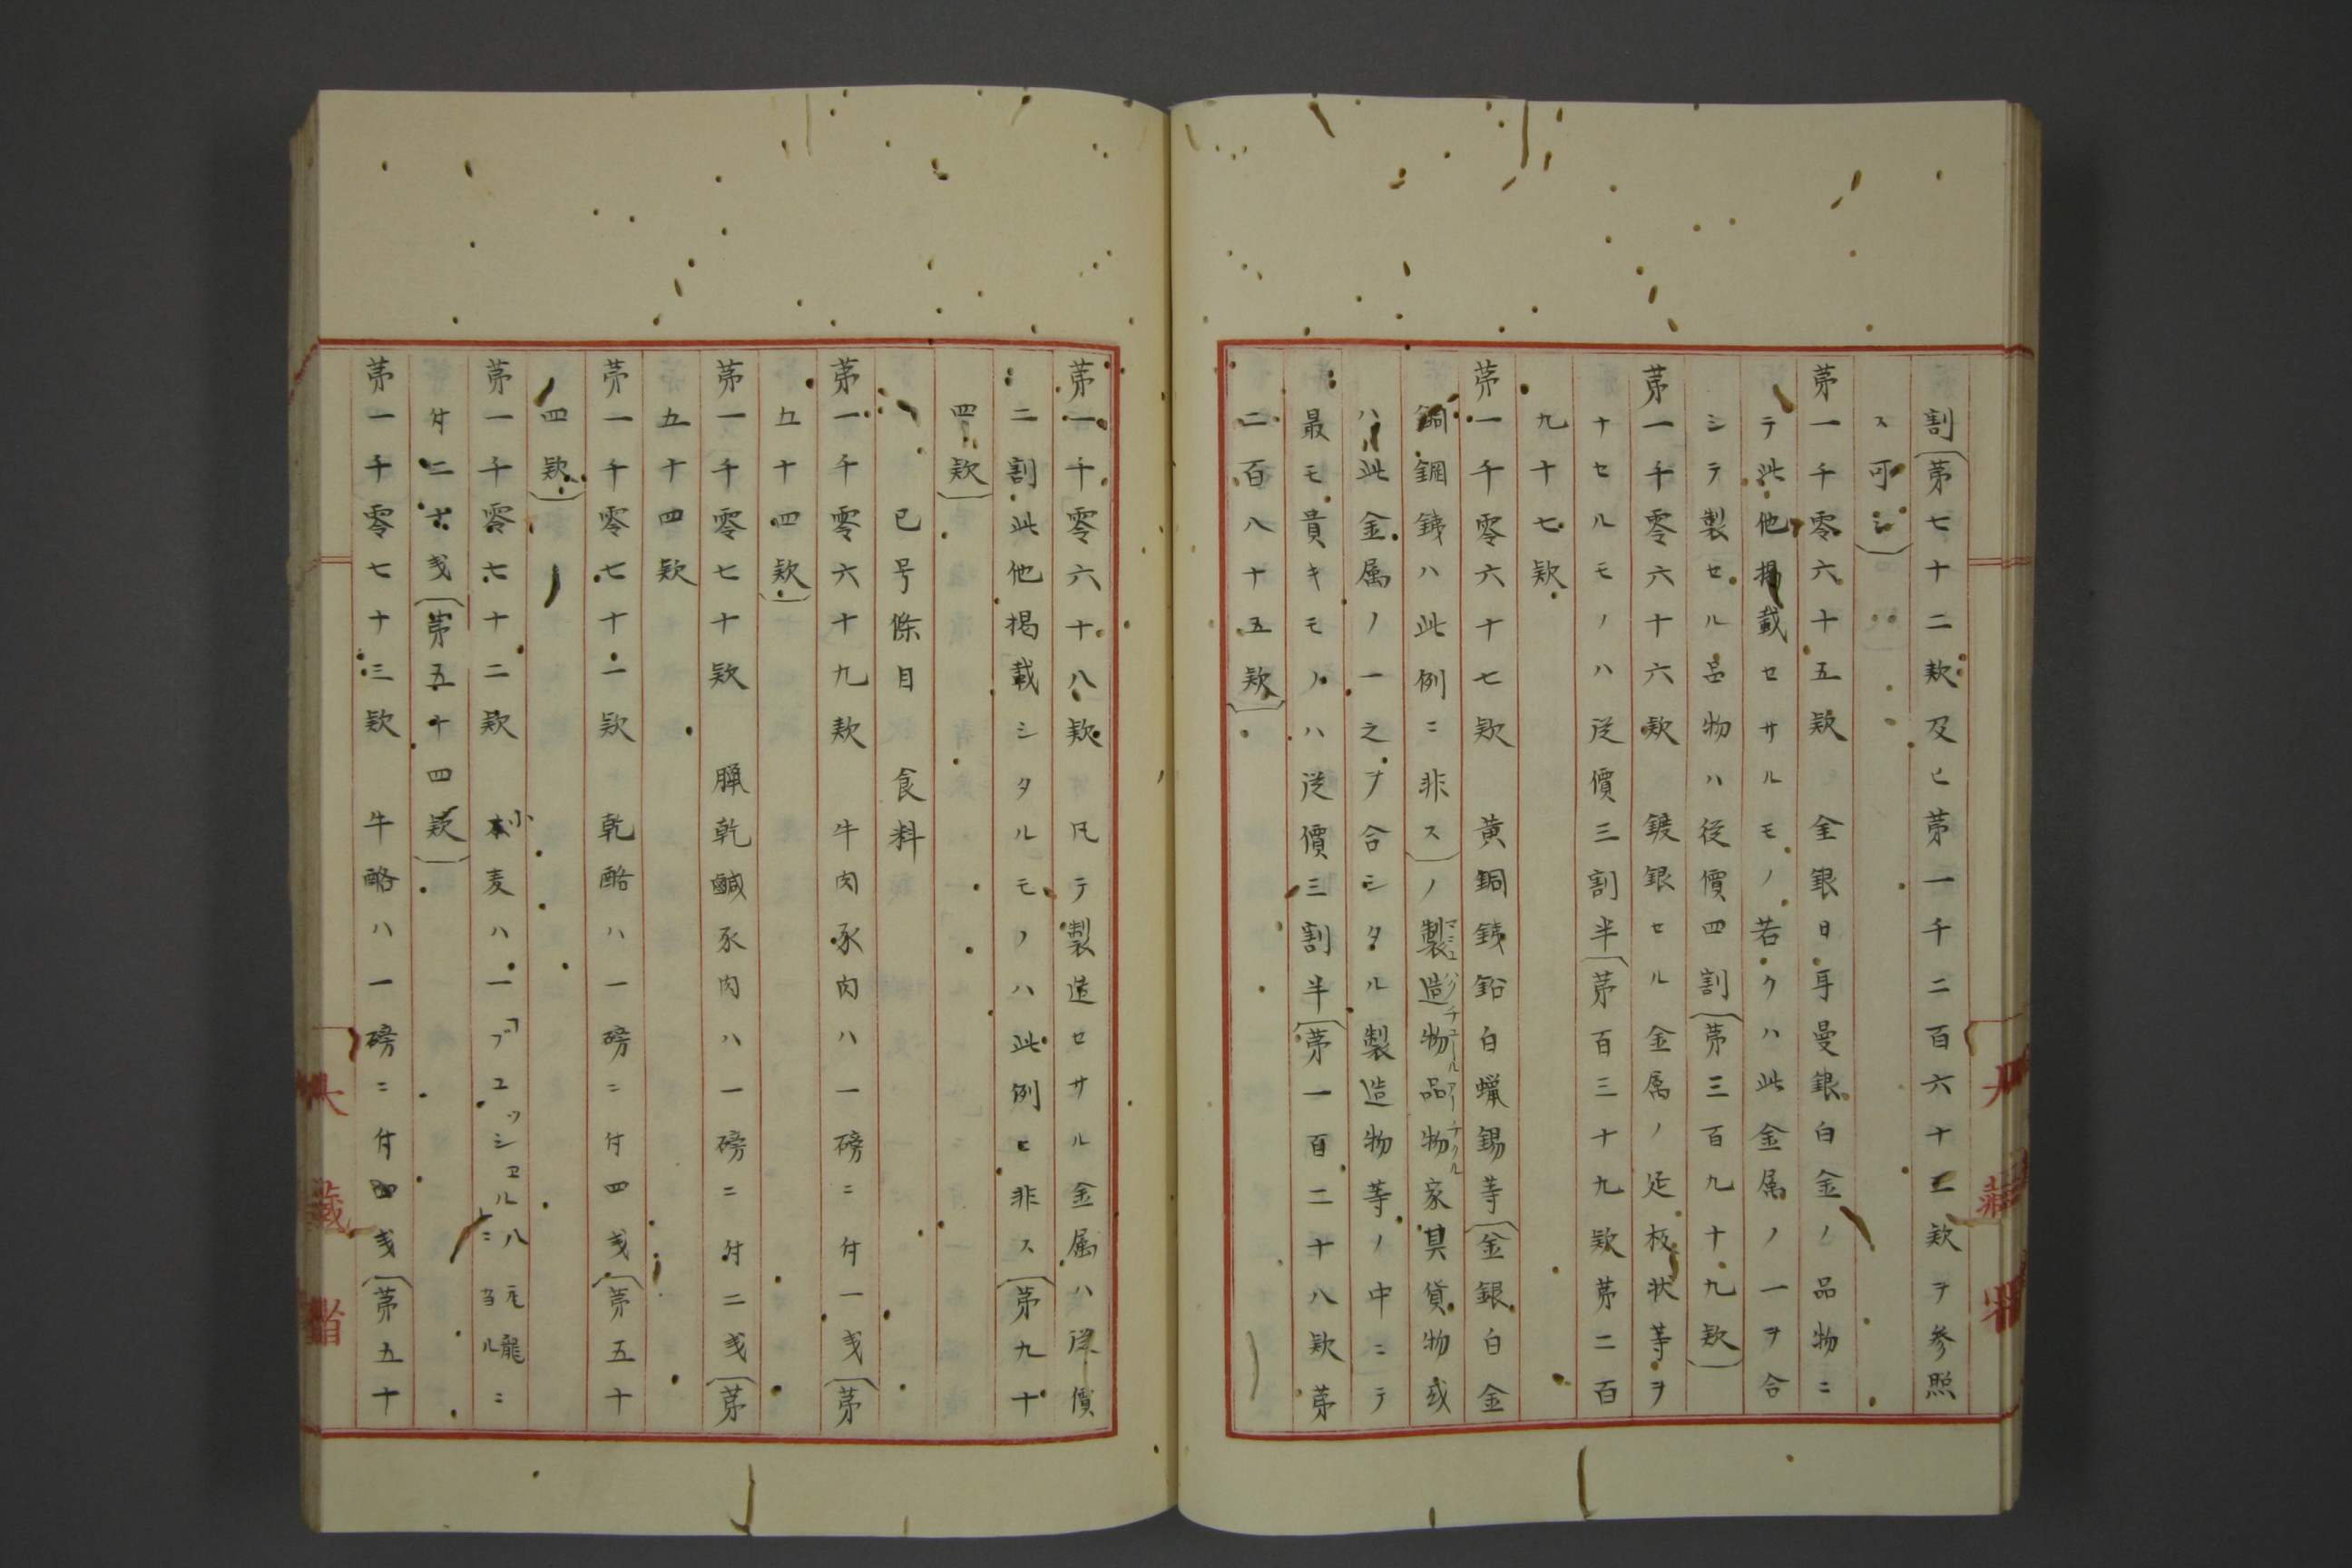 割（第七十二款及ヒ第一千二百六十三款ヲ参照
ス可シ）
第一千零六十五款　金銀日耳曼銀白金ノ品物ニ
テ此他掲載セサルモノ若クハ此金属ノ一ヲ合
シテ製セル品物ハ從價四割（第三百九十九款）
第一千零六十六款　鍍銀セル金属ノ延板状等ヲ
ナセルモノハ從價三割半（第百三十九款第二百
九十七款
第一千零六十七款　黄銅銕鉛白蝋錫等（金銀白金
銅鋼銕ハ此例ニ非ス）ノ製造物品物家具貨物或
ハ此金属ノ一之ヲ合シタル製造物等ノ中ニテ
最モ貴キモノハ從價三割半（第一百二十八款第
二百八十五款）
第一千零六十八款　凡テ製造セサル金属ハ從價
二割此他掲載シタルモノハ此例ニ非ス（第九十
四款）
巳号條目　食料
第一千零六十九款　牛肉豕肉ハ一磅ニ付一戔（第
五十四款）
第一千零七十款　臘乾鹹豕肉ハ一磅ニ付二戔（第
五十四款
第一千零七十一款　乾酪ハ一磅ニ付四戔（第五十
四款）
第一千零七十二款　小麦ハ一「ブユッシヱル」八瓦龍ニ当ルニ
付二十戔（第五十四款）
第一千零七十三款　牛酪ハ一磅ニ付四戔（第五十
大藏省